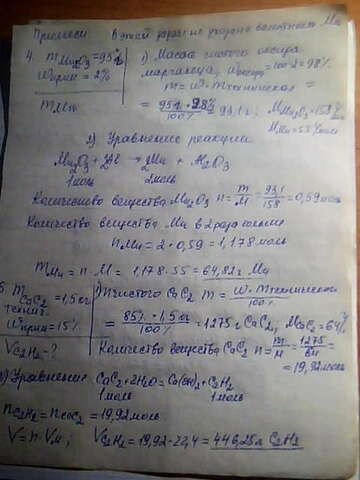 Примеси В этой задаче не указана валентность Mn
4. m Mn₂O₃ = 95 г 1) Масса чистого оксида
w прим = 2% марганца, w оксида = 100-2 = 98%
m = w · m технический =
m Mn = 95 г · 98% / 100% = 93,1 г; M Mn₂O₃ = 158 г/моль
M Mn = 55 г/моль
2) Уравнение реакции
Mn₂O₃ + 2Al → 2Mn + Al₂O₃
1 моль 2 моль
Количество вещества Mn₂O₃ n = m/M = 93,1/158 = 0,59 моль
Количество вещества Mn в 2 раза больше
n Mn = 2 · 0,59 = 1,178 моль
m Mn = n · M = 1,178 · 55 = 64,82 г Mn
5. m CaC₂ = 1,5 кг 1) m чистого CaC₂ m = w · m технический / 100%
технич.
w прим = 15% = 85% · 1,5 кг / 100% = 1275 г CaC₂, M CaC₂ = 64 г/
V C₂H₂ = ? Количество вещества CaC₂ n = m/M = 1275/64 =
= 19,92 моль
2) Уравнение CaC₂ + 2H₂O = Ca(OH)₂ + C₂H₂
1 моль 1 моль
n C₂H₂ = n CaC₂ = 19,92 моль
V = n · Vм; V C₂H₂ = 19,92 · 22,4 = 446,25 л C₂H₂